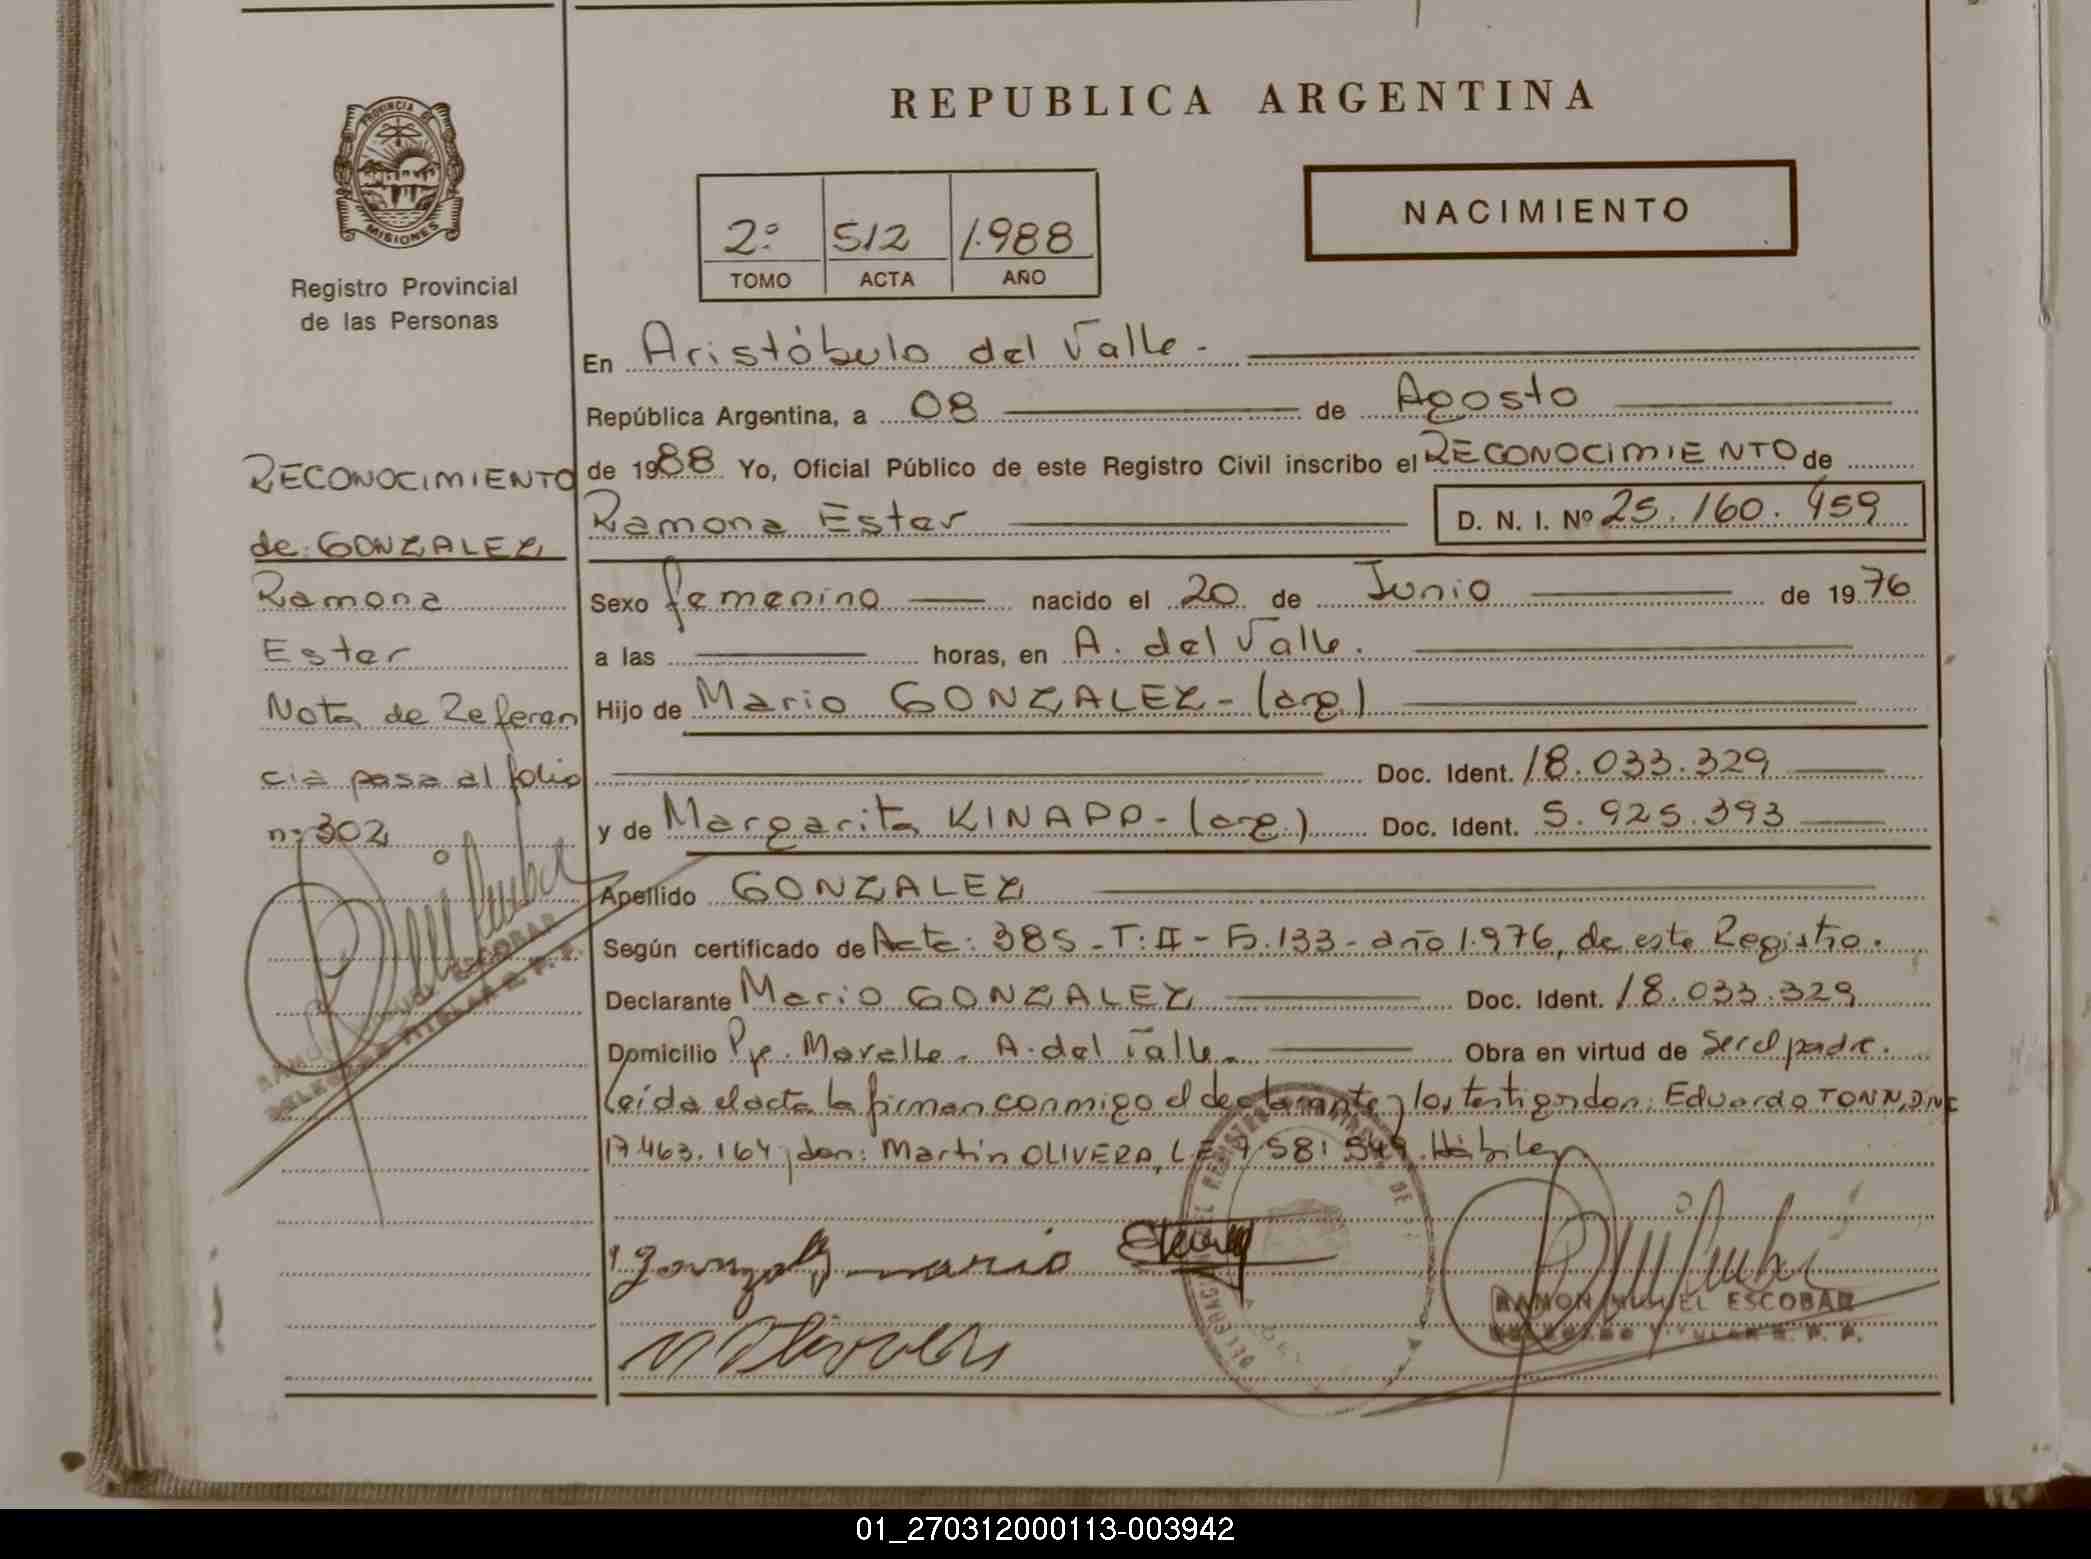 PROVINCIA DE
MISIONES
Registro Provincial
de las Personas
REPUBLICA ARGENTINA
2º 512 1.988
TOMO ACTA AÑO
NACIMIENTO
En Aristóbulo del Valle.-
República Argentina, a 08 de Agosto
de 1988 Yo, Oficial Público de este Registro Civil inscribo el RECONOCIMIENTO de
Ramona Ester D. N. I. Nº 25.160.459
Sexo femenino nacido el 20 de Junio de 1976
a las horas, en A. del Valle.
Hijo de Mario GONZALEZ - (arg)
Doc. Ident. 18.033.329
y de Margarita KINAPP - (arg.) Doc. Ident. 5.925.393
Apellido GONZALEZ
Según certificado de Acta: 385 - T: II - F. 133 - año 1.976, de este Registro.
Declarante Mario GONZALEZ Doc. Ident. 18.033.329
Domicilio Pje. Mavalle. A. del Valle. Obra en virtud de ser el padre.
Leída el acta la firman conmigo el declarante y los testigos don: Eduardo TONN, DNI
17.463.164, don: Martín OLIVERA, LE 7.581.549. Hábiles
Gonzalez mario
M Olivera
RAMON MIGUEL ESCOBAR
DELEGADO TITULAR R. P. P.
RECONOCIMIENTO
de: GONZALEZ
Ramona
Ester
Nota de Referen
cia pasa al folio
nº 302
RAMON MIGUEL ESCOBAR
DELEGADO TITULAR R. P. P.
01_270312000113-003942